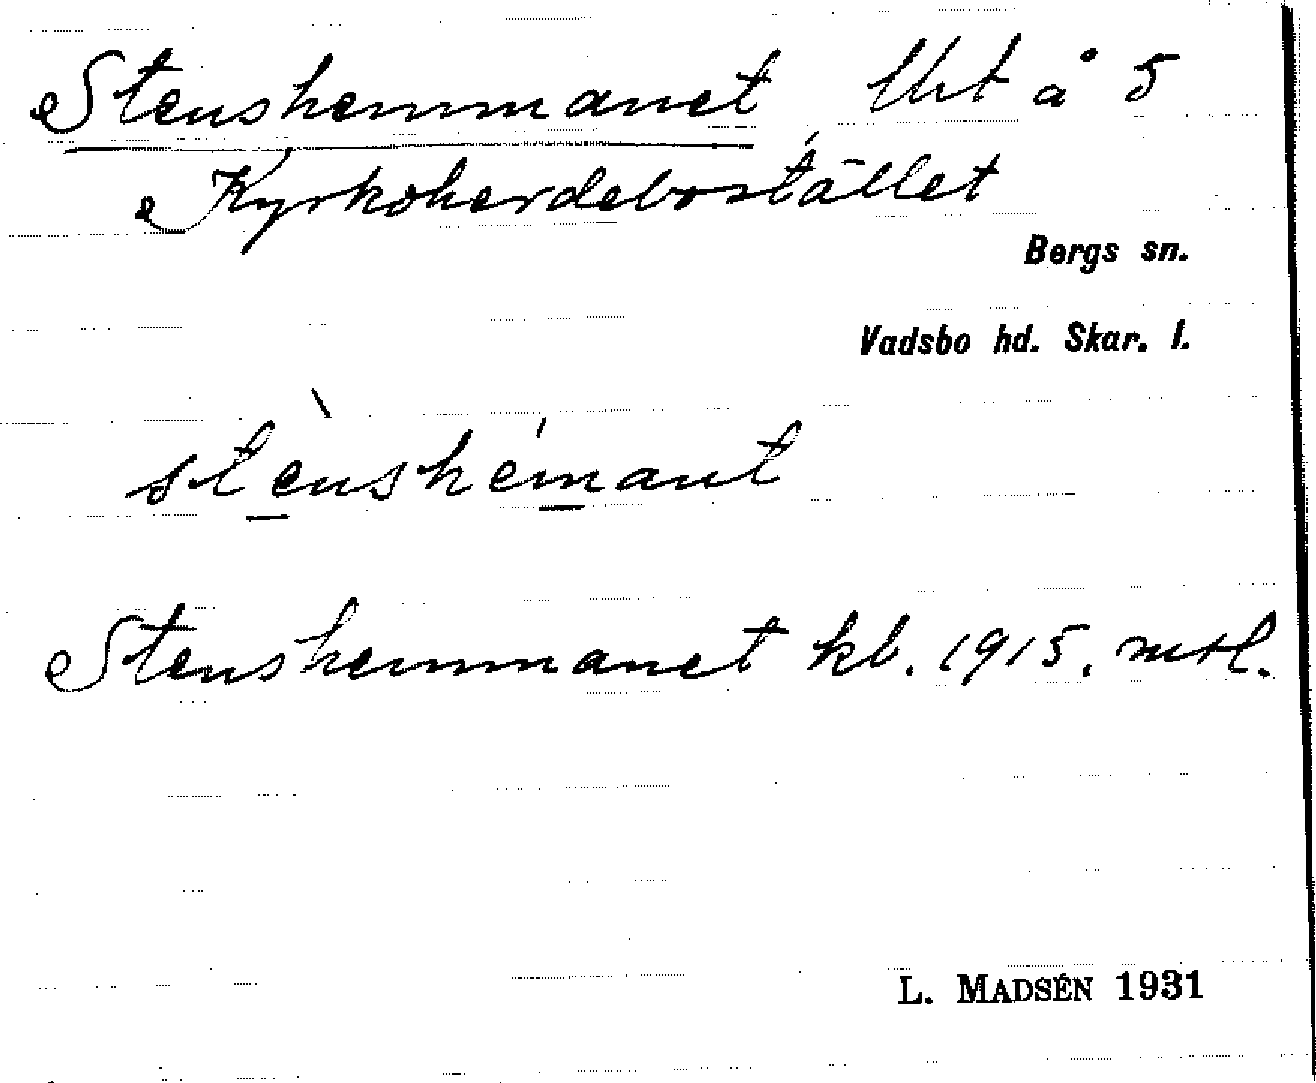 Stenshemmanet, lht å 5
Kyrkoherdebostället
Bergs sn.
Vadsbo hd. Skar. l.
stènshémant
Stenshemmanet kb. 1915. mtl.
L. MADSÉN 1931